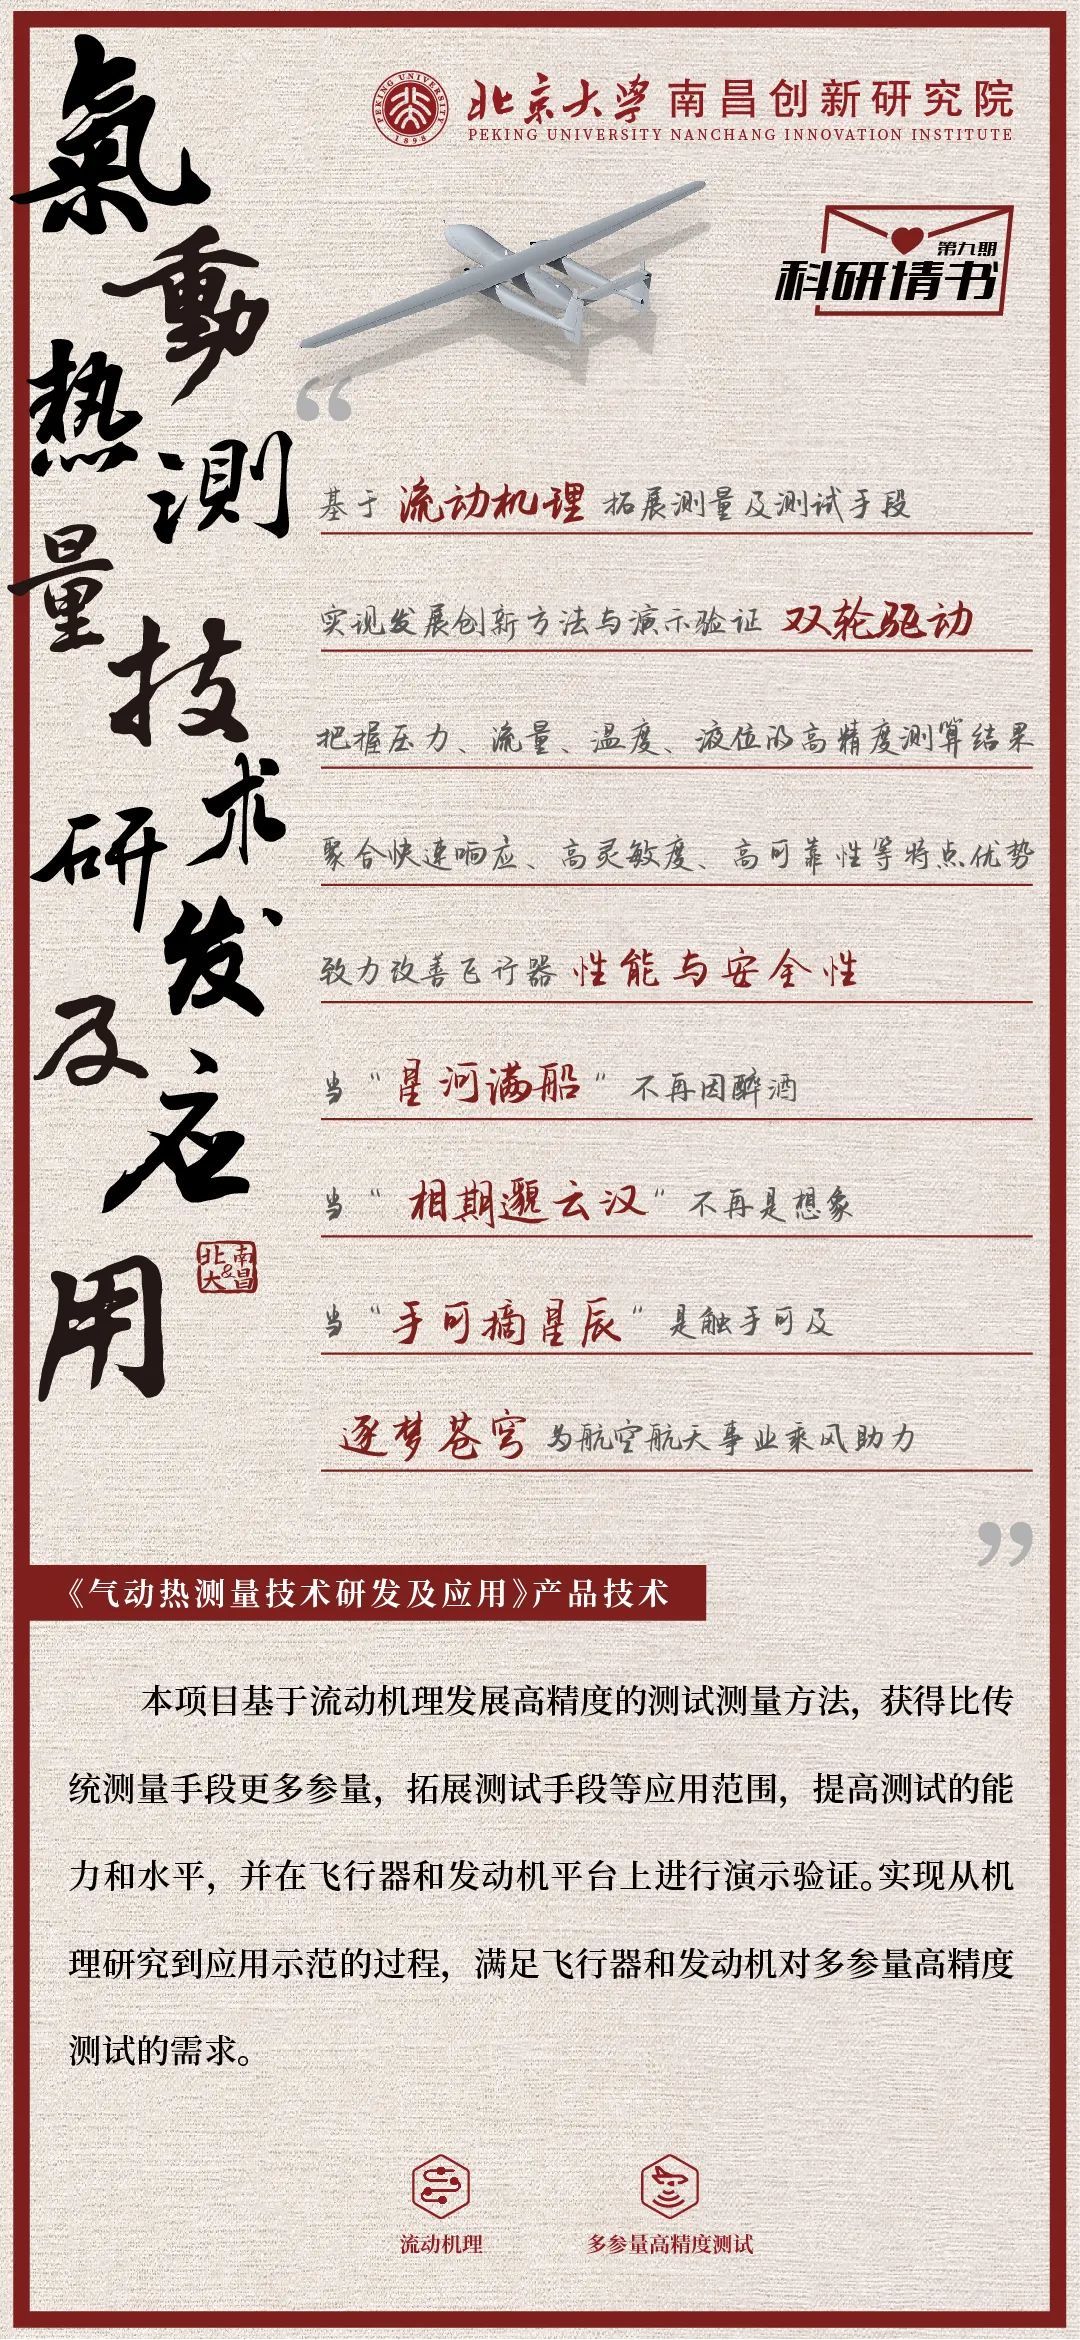 PEKING UNIVERSITY
1898
北京大学 南昌创新研究院
PEKING UNIVERSITY NANCHANG INNOVATION INSTITUTE
第九期
科研情书
氣動热測量技术研发及应用
北大
&
南昌
“
基于 流动机理 拓展测量及测试手段
实现发展创新方法与演示验证 双轮驱动
把握压力、流量、温度、液位的高精度测算结果
聚合快速响应、高灵敏度、高可靠性等特点优势
致力改善飞行器 性能与安全性
当“星河满船”不再因醉酒
当“相期邈云汉”不再是想象
当“手可摘星辰”是触手可及
逐梦苍穹 为航空航天事业乘风助力
”
《气动热测量技术研发及应用》产品技术
本项目基于流动机理发展高精度的测试测量方法，获得比传
统测量手段更多参量，拓展测试手段等应用范围，提高测试的能
力和水平，并在飞行器和发动机平台上进行演示验证。实现从机
理研究到应用示范的过程，满足飞行器和发动机对多参量高精度
测试的需求。
流动机理
多参量高精度测试